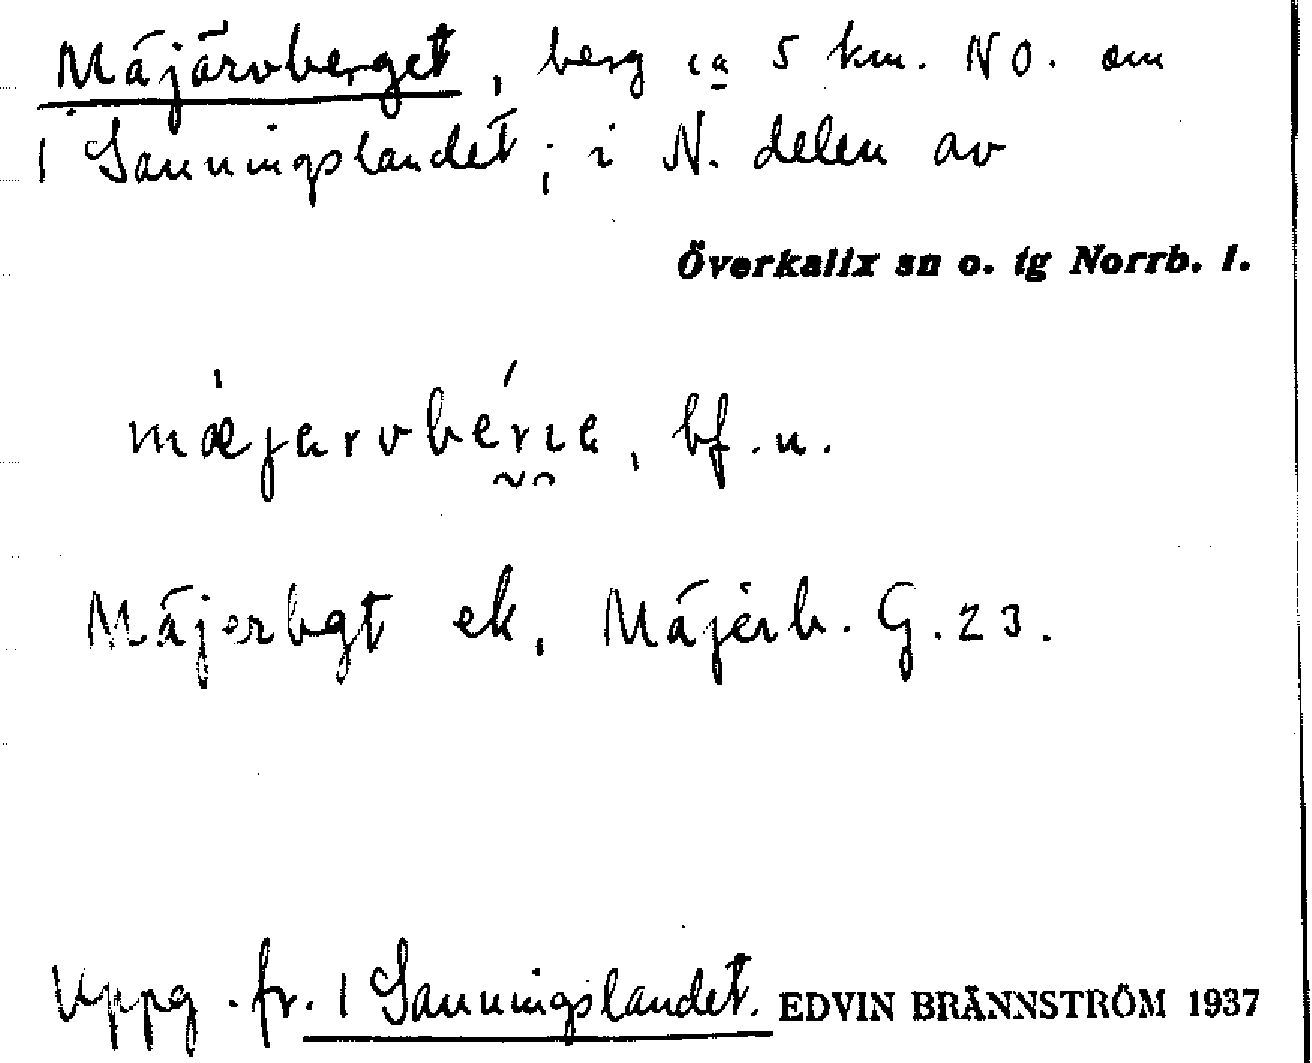 Mäjärvberget, berg ca 5 km. NO. om
1 Sanningslandet; i N. delen av
Överkalix sn o. tg Norrb. l.
bf. n.
Mäjerbgt ek, Mäjerb. G. 23.
Uppg. fr. 1 Sanningslandet. EDVIN BRÄNNSTRÖM 1937